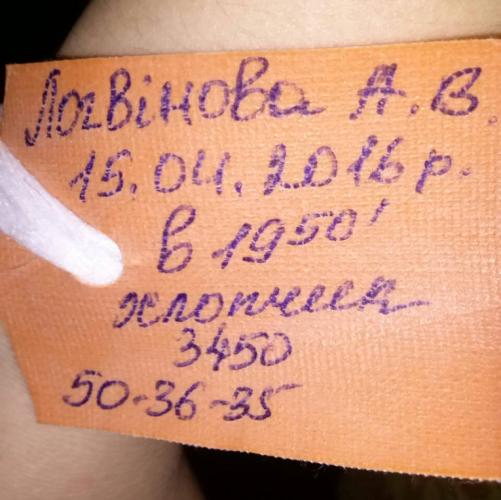 Логвінова А.В.
15.04.2016 р.
в 19⁵⁰'
хлопчик
3450
50-36-35